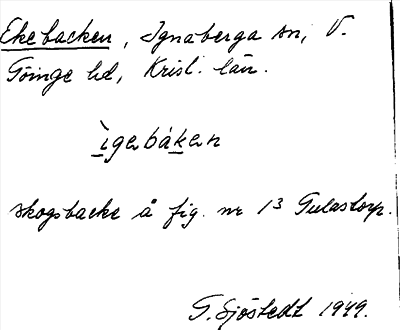 Ekebacken, Ignaberga sn, V.
Göinge hd, Krist. län.
ìgebáken
skogsbacke å fig. nr 13 Gulastorp.
G. Sjöstedt 1949.